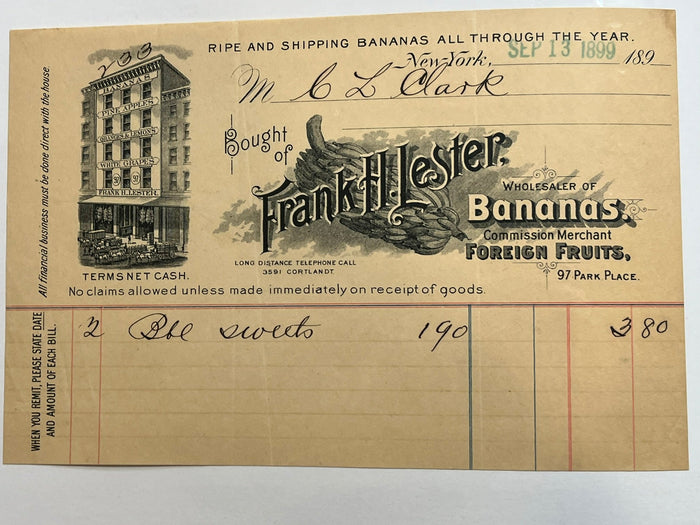 RIPE AND SHIPPING BANANAS ALL THROUGH THE YEAR.
233
New York, SEP 13 1899 189
M C L Clark
Bought of
Frank H. Lester,
WHOLESALER OF
Bananas.
Commission Merchant
FOREIGN FRUITS,
97 PARK PLACE.
LONG DISTANCE TELEPHONE CALL
3591 CORTLANDT.
BANANAS
PINE APPLES
ORANGES & LEMONS
WHITE GRAPES
97 97
FRANK H. LESTER
TERMS NET CASH.
All financial business must be done direct with the house
No claims allowed unless made immediately on receipt of goods.
WHEN YOU REMIT, PLEASE STATE DATE
AND AMOUNT OF EACH BILL.
2 Bbl sweets 190 3 80